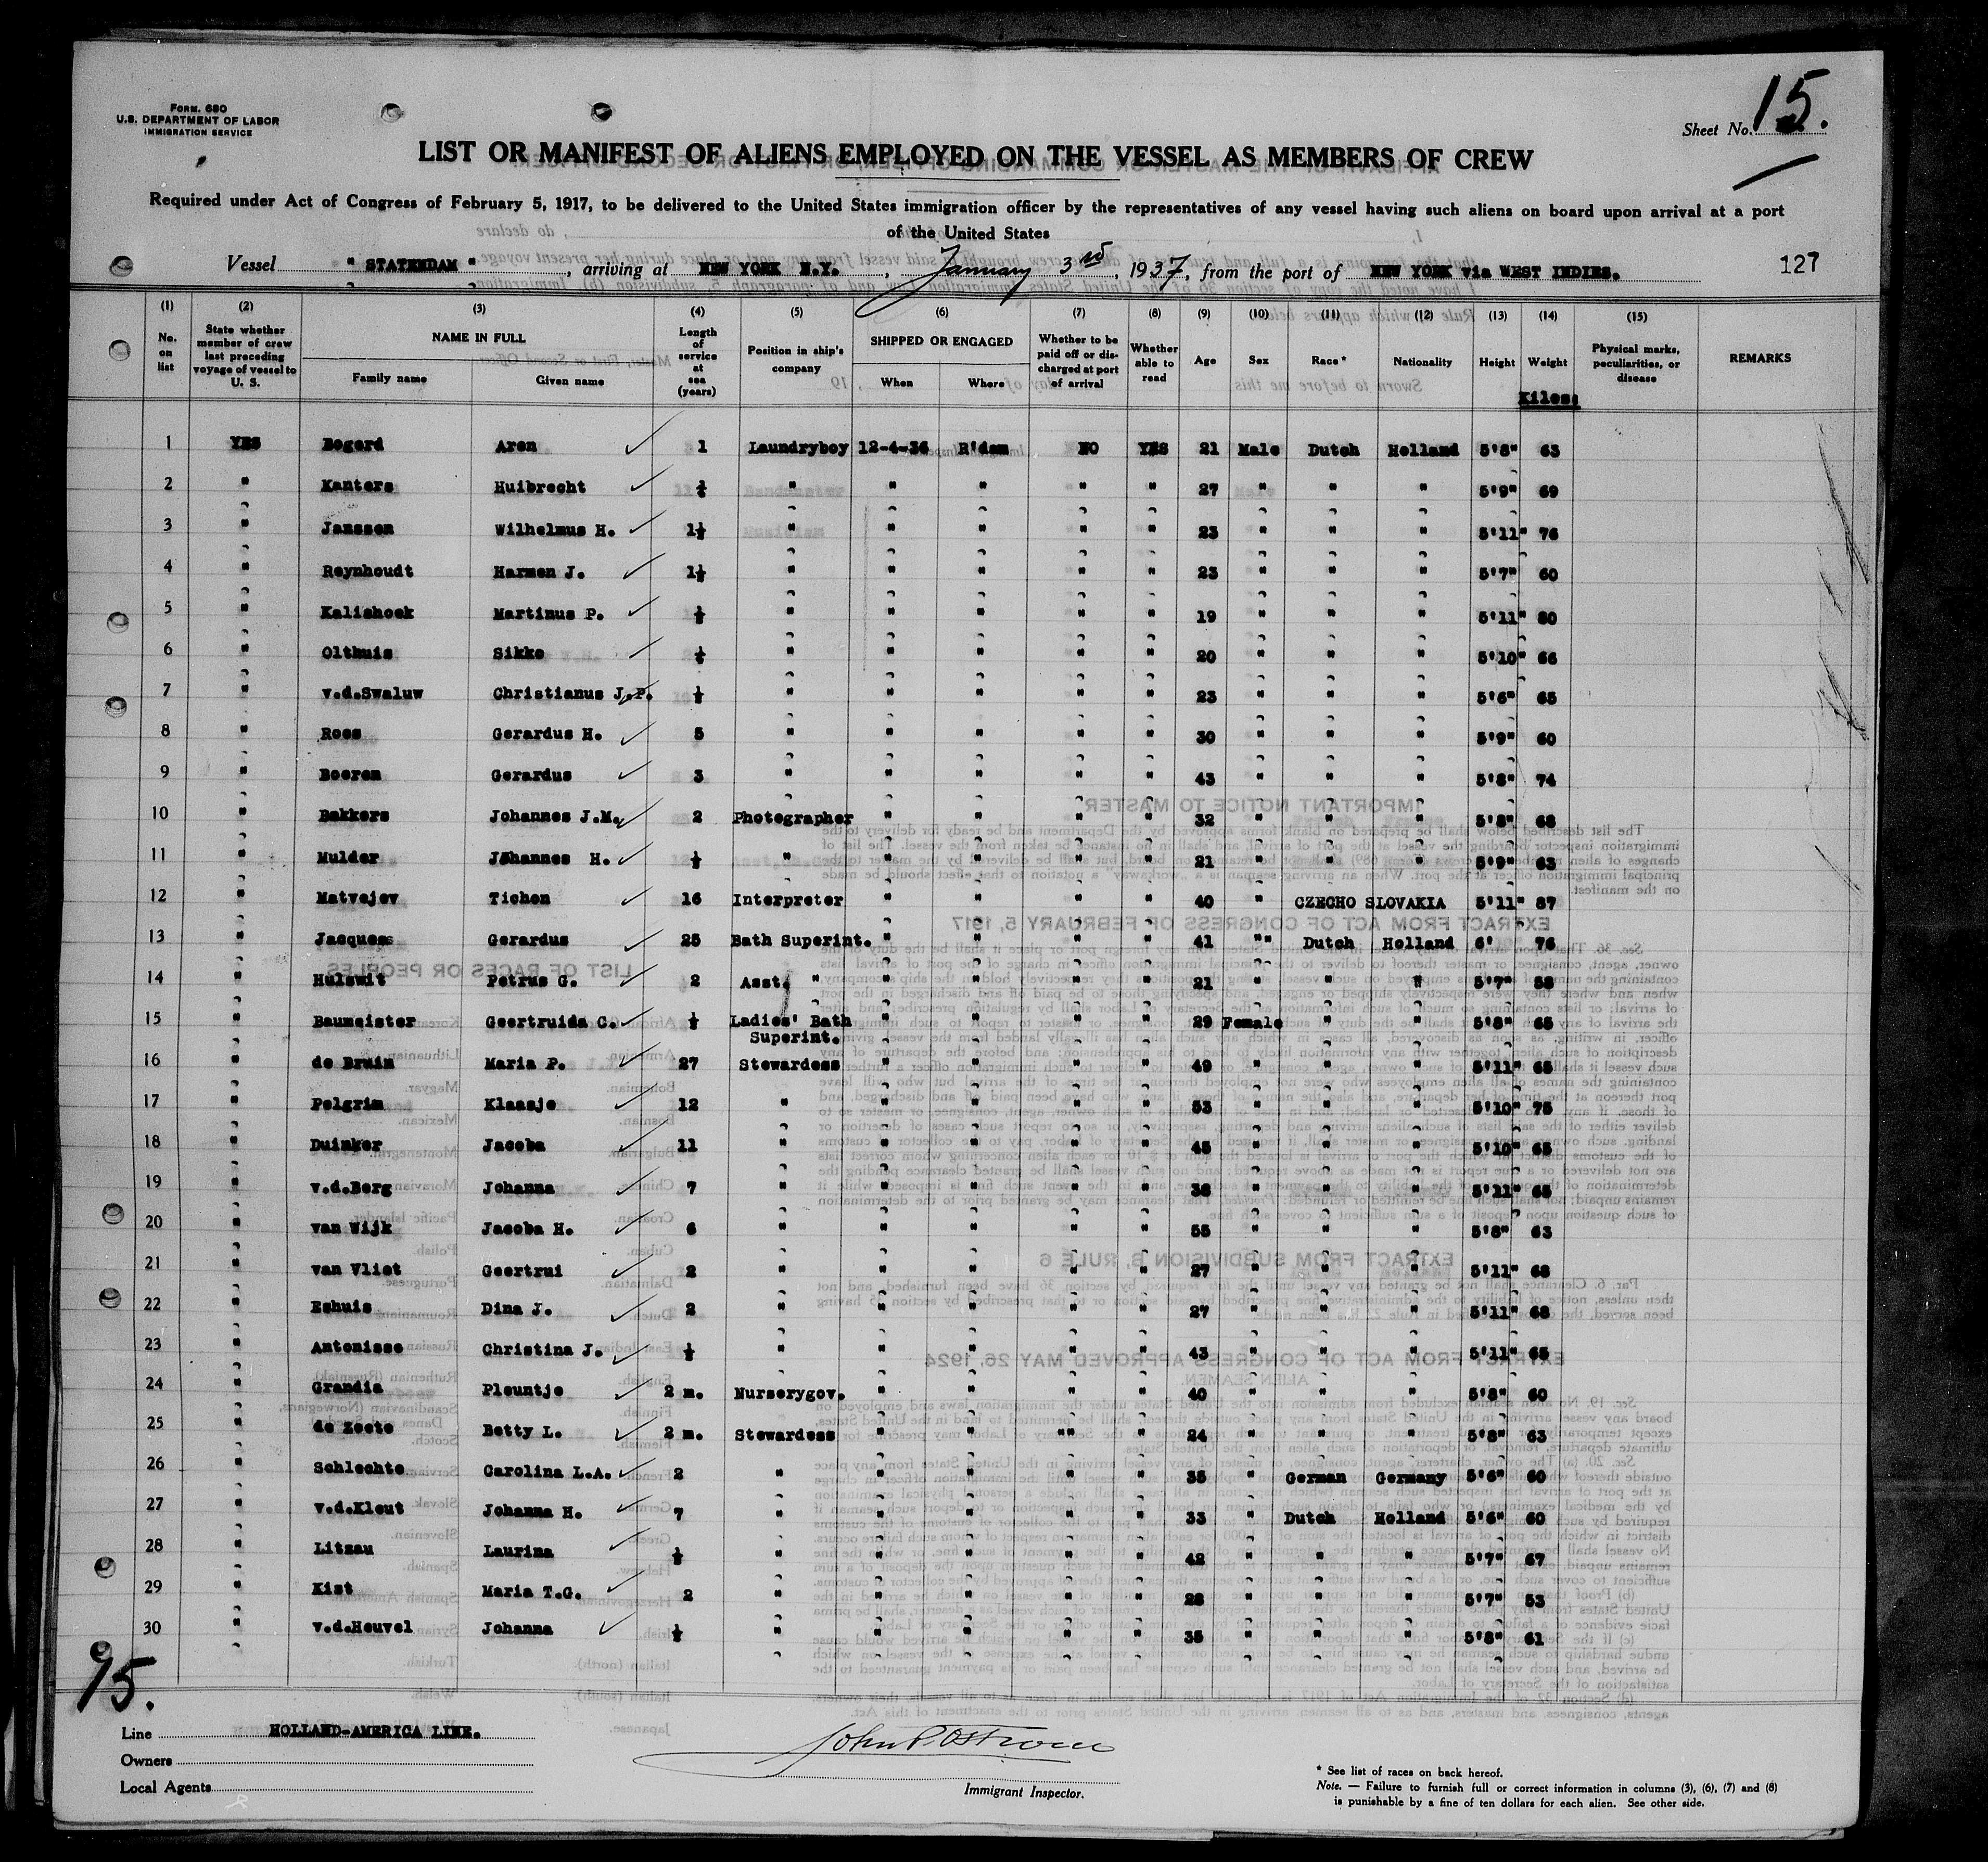 Form. 680
U.S. DEPARTMENT OF LABOR
IMMIGRATION SERVICE
Sheet No. 15.
LIST OR MANIFEST OF ALIENS EMPLOYED ON THE VESSEL AS MEMBERS OF CREW
Required under Act of Congress of February 5, 1917, to be delivered to the United States immigration officer by the representatives of any vessel having such aliens on board upon arrival at a port
of the United States
Vessel " STATENDAM ", arriving at NEW YORK N.Y., January 3rd, 1937, from the port of NEW YORK via WEST INDIES. 127
(1) (2) (3) (4) (5) (6) (7) (8) (9) (10) (11) (12) (13) (14) (15)
No. on list State whether member of crew last preceding voyage of vessel to U. S. NAME IN FULL Family name Given name Length of service at sea (years) Position in ship's company SHIPPED OR ENGAGED When Where Whether to be paid off or discharged at port of arrival Whether able to read Age Sex Race* Nationality Height Weight Physical marks, peculiarities, or disease REMARKS
Kilos:
1 YES Bogerd Aren 1 Laundryboy 12-4-36 R'dam NO YES 21 Male Dutch Holland 5'8" 63
2 " Kanters Huibrecht ½ " " " " " 27 " " " 5'9" 69
3 " Janssen Wilhelmus H. 1½ " " " " " 23 " " " 5'11" 76
4 " Reynhoudt Harmen J. 1½ " " " " " 23 " " " 5'7" 60
5 " Kalishoek Martinus P. ½ " " " " " 19 " " " 5'11" 80
6 " Olthuis Sikko ½ " " " " " 20 " " " 5'10" 66
7 " v.d.Swaluw Christianus J.P. ½ " " " " " 23 " " " 5'6" 65
8 " Roos Gerardus H. 5 " " " " " 30 " " " 5'9" 60
9 " Boeren Gerardus 3 " " " " " 43 " " " 5'8" 74
10 " Bakkers Johannes J.M. 2 Photographer " " " " 32 " " " 5'8" 68
11 " Mulder Johannes H. ½ " " " " " 21 " " " 5'9" 63
12 " Matvejev Tichon 16 Interpreter " " " " 40 " CZECHO SLOVAKIA 5'11" 87
13 " Jacques Gerardus 25 Bath Superint. " " " " 41 "" Dutch Holland 6' 76
14 " Hulswit Petrus G. 2 Asst. " " " " " 21 " " " 5'7" 58
15 " Baumeister Geertruida C. ½ Ladies' Bath Superint. " " " " 29 Female " " 5'8" 65
16 " de Bruin Maria P. 27 Stewardess " " " " 49 " " " 5'11" 65
17 " Pelgrim Klaasje 12 " " " " " 53 " " " 5'10" 75
18 " Duinker Jacoba 11 " " " " " 45 " " " 5'10" 65
19 " v.d.Berg Johanna 7 " " " " " 38 " " " 5'11" 65
20 " van Wijk Jacoba H. 6 " " " " " 55 " " " 5'8" 63
21 " van Vliet Geertrui 2 " " " " " 27 " " " 5'11" 68
22 " Eshuis Dina J. 2 " " " " " 27 " " " 5'11" 68
23 " Antonisse Christina J. ½ " " " " " 43 " " " 5'11" 65
24 " Grandia Pleuntje 2 m. Nurserygov. " " " " 40 " " " 5'8" 60
25 " de Zeete Betty L. 2 m. Stewardess " " "" " 24 " " " 5'8" 63
26 " Schlechte Carolina L.A. 2 " " " " " 35 " German Germany 5'6" 60
27 " v.d.Kleut Johanna H. 7 " " " " " 33 " Dutch Holland 5'6" 60
28 " Litzau Laurina ½ " " " " " 42 " " " 5'7" 67
29 " Kist Maria T.G. 2 " " " " " 28 " " " 5'7" 53
30 " v.d.Heuvel Johanna ½ " " " " " 35 " " " 5'8" 61
95.
Line HOLLAND-AMERICA LINE.
Owners
Local Agents
Immigrant Inspector.
* See list of races on back hereof.
Note. — Failure to furnish full or correct information in columns (3), (6), (7) and (8)
is punishable by a fine of ten dollars for each alien. See other side.